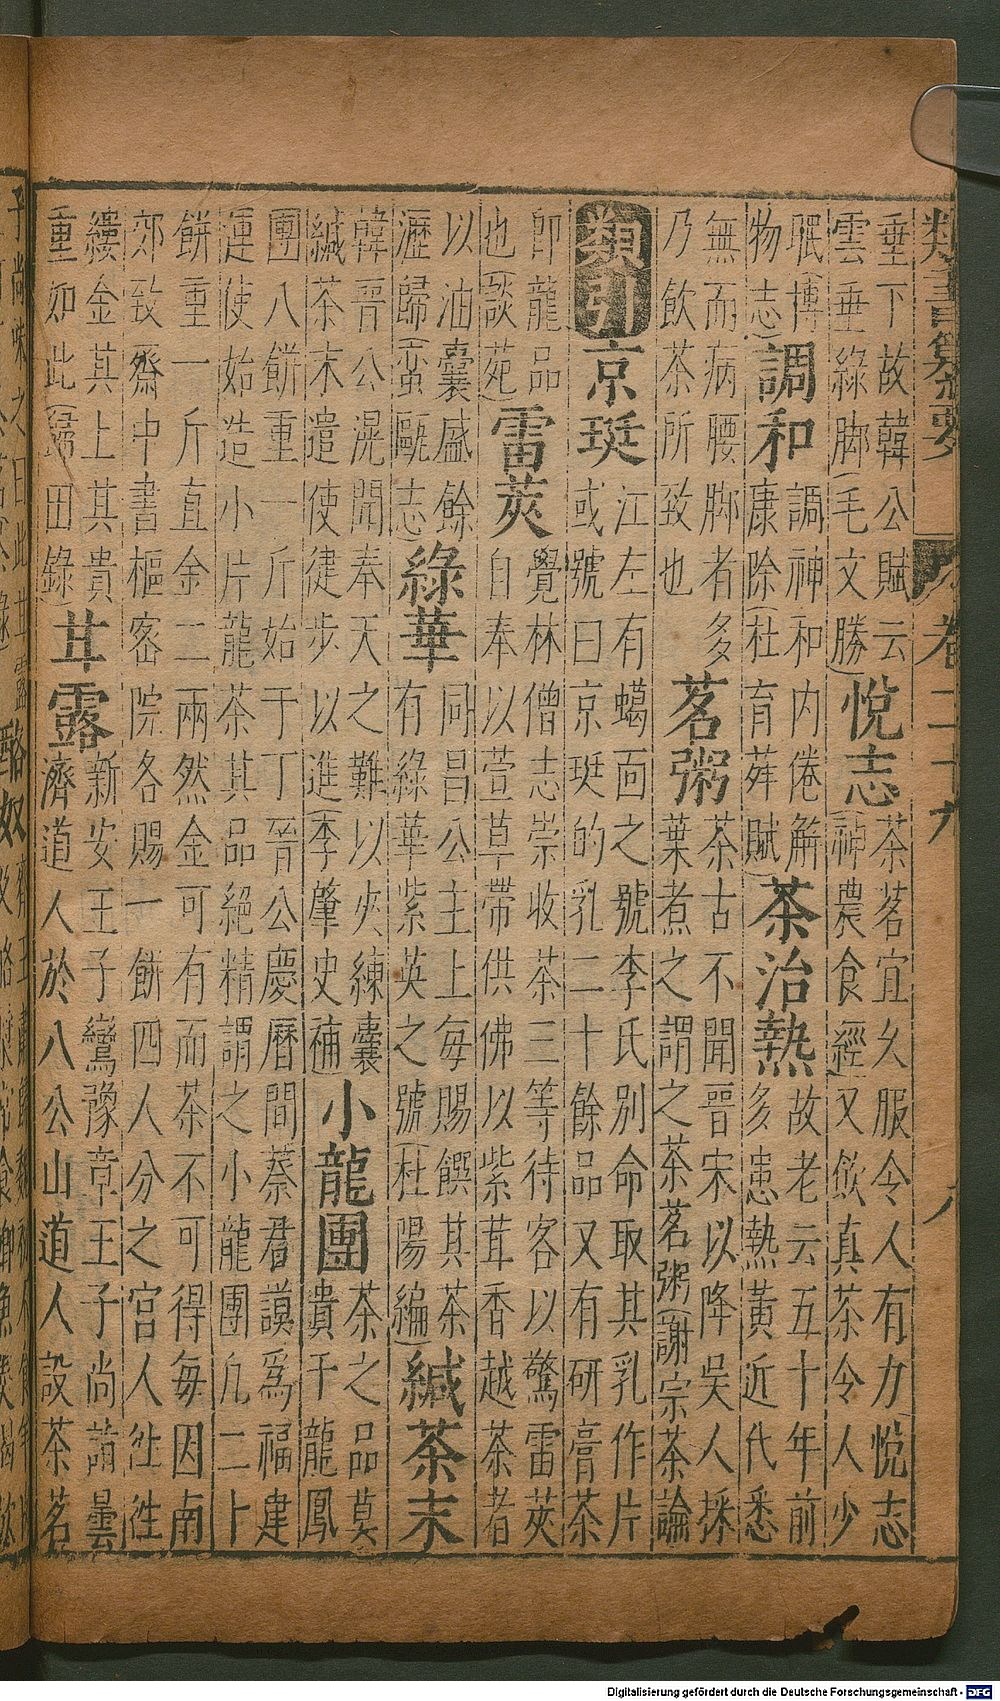 類書纂要 卷二十九 八
垂下故韓公賦云
雲垂綠脚(毛文勝)
悅志
茶茗宜久服令人有力悅志
(神農食經)又飲真茶令人少
眠(博
物志)
調和
調神和內倦解
康除(杜育荈賦)
茶治熱
故老云五十年前
多患熱黃近代悉
無而病腰脚者多
乃飲茶所致也
茗粥
茶古不聞晉宋以降吳人採
葉煮之謂之茶茗粥(謝宗茶論
類引
京珽
江左有蝎面之號李氏別命取其乳作片
或號曰京珽的乳二十餘品又有研膏茶
即龍品
也(談苑)
雷莢
覺林僧志崇收茶三等待客以驚雷莢
自奉以萱草帶供佛以紫茸香越茶者
以油囊盛餘
瀝歸(蛮甌志)
綠華
同昌公主上每賜饌其茶
有綠華紫英之號(杜陽編)
緘茶末
韓晉公滉聞奉天之難以夾練囊
緘茶末遣使健步以進(李肇史補)
小龍團
茶之品莫
貴于龍鳳
團八餅重一斤始于丁晉公慶曆間蔡君謨爲福建
運使始造小片龍茶其品絕精謂之小龍團凡二十
餅重一斤直金二兩然金可有而茶不可得每因南
郊致齋中書樞密院各賜一餅四人分之宮人往往
縷金其上其貴
重如此(歸田錄)
甘露
新安王子鸞豫章王子尚詣曇
濟道人於八公山道人設茶茗
子尚味之曰此甘露
酪奴
Digitalisierung gefördert durch die Deutsche Forschungsgemeinschaft - DFG